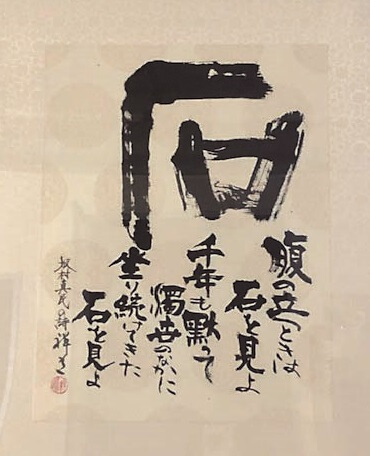 石
腹の立つときは
石を見よ
千年も黙って
濁世のなかに
坐り続けてきた
石を見よ
坂村真民の詩